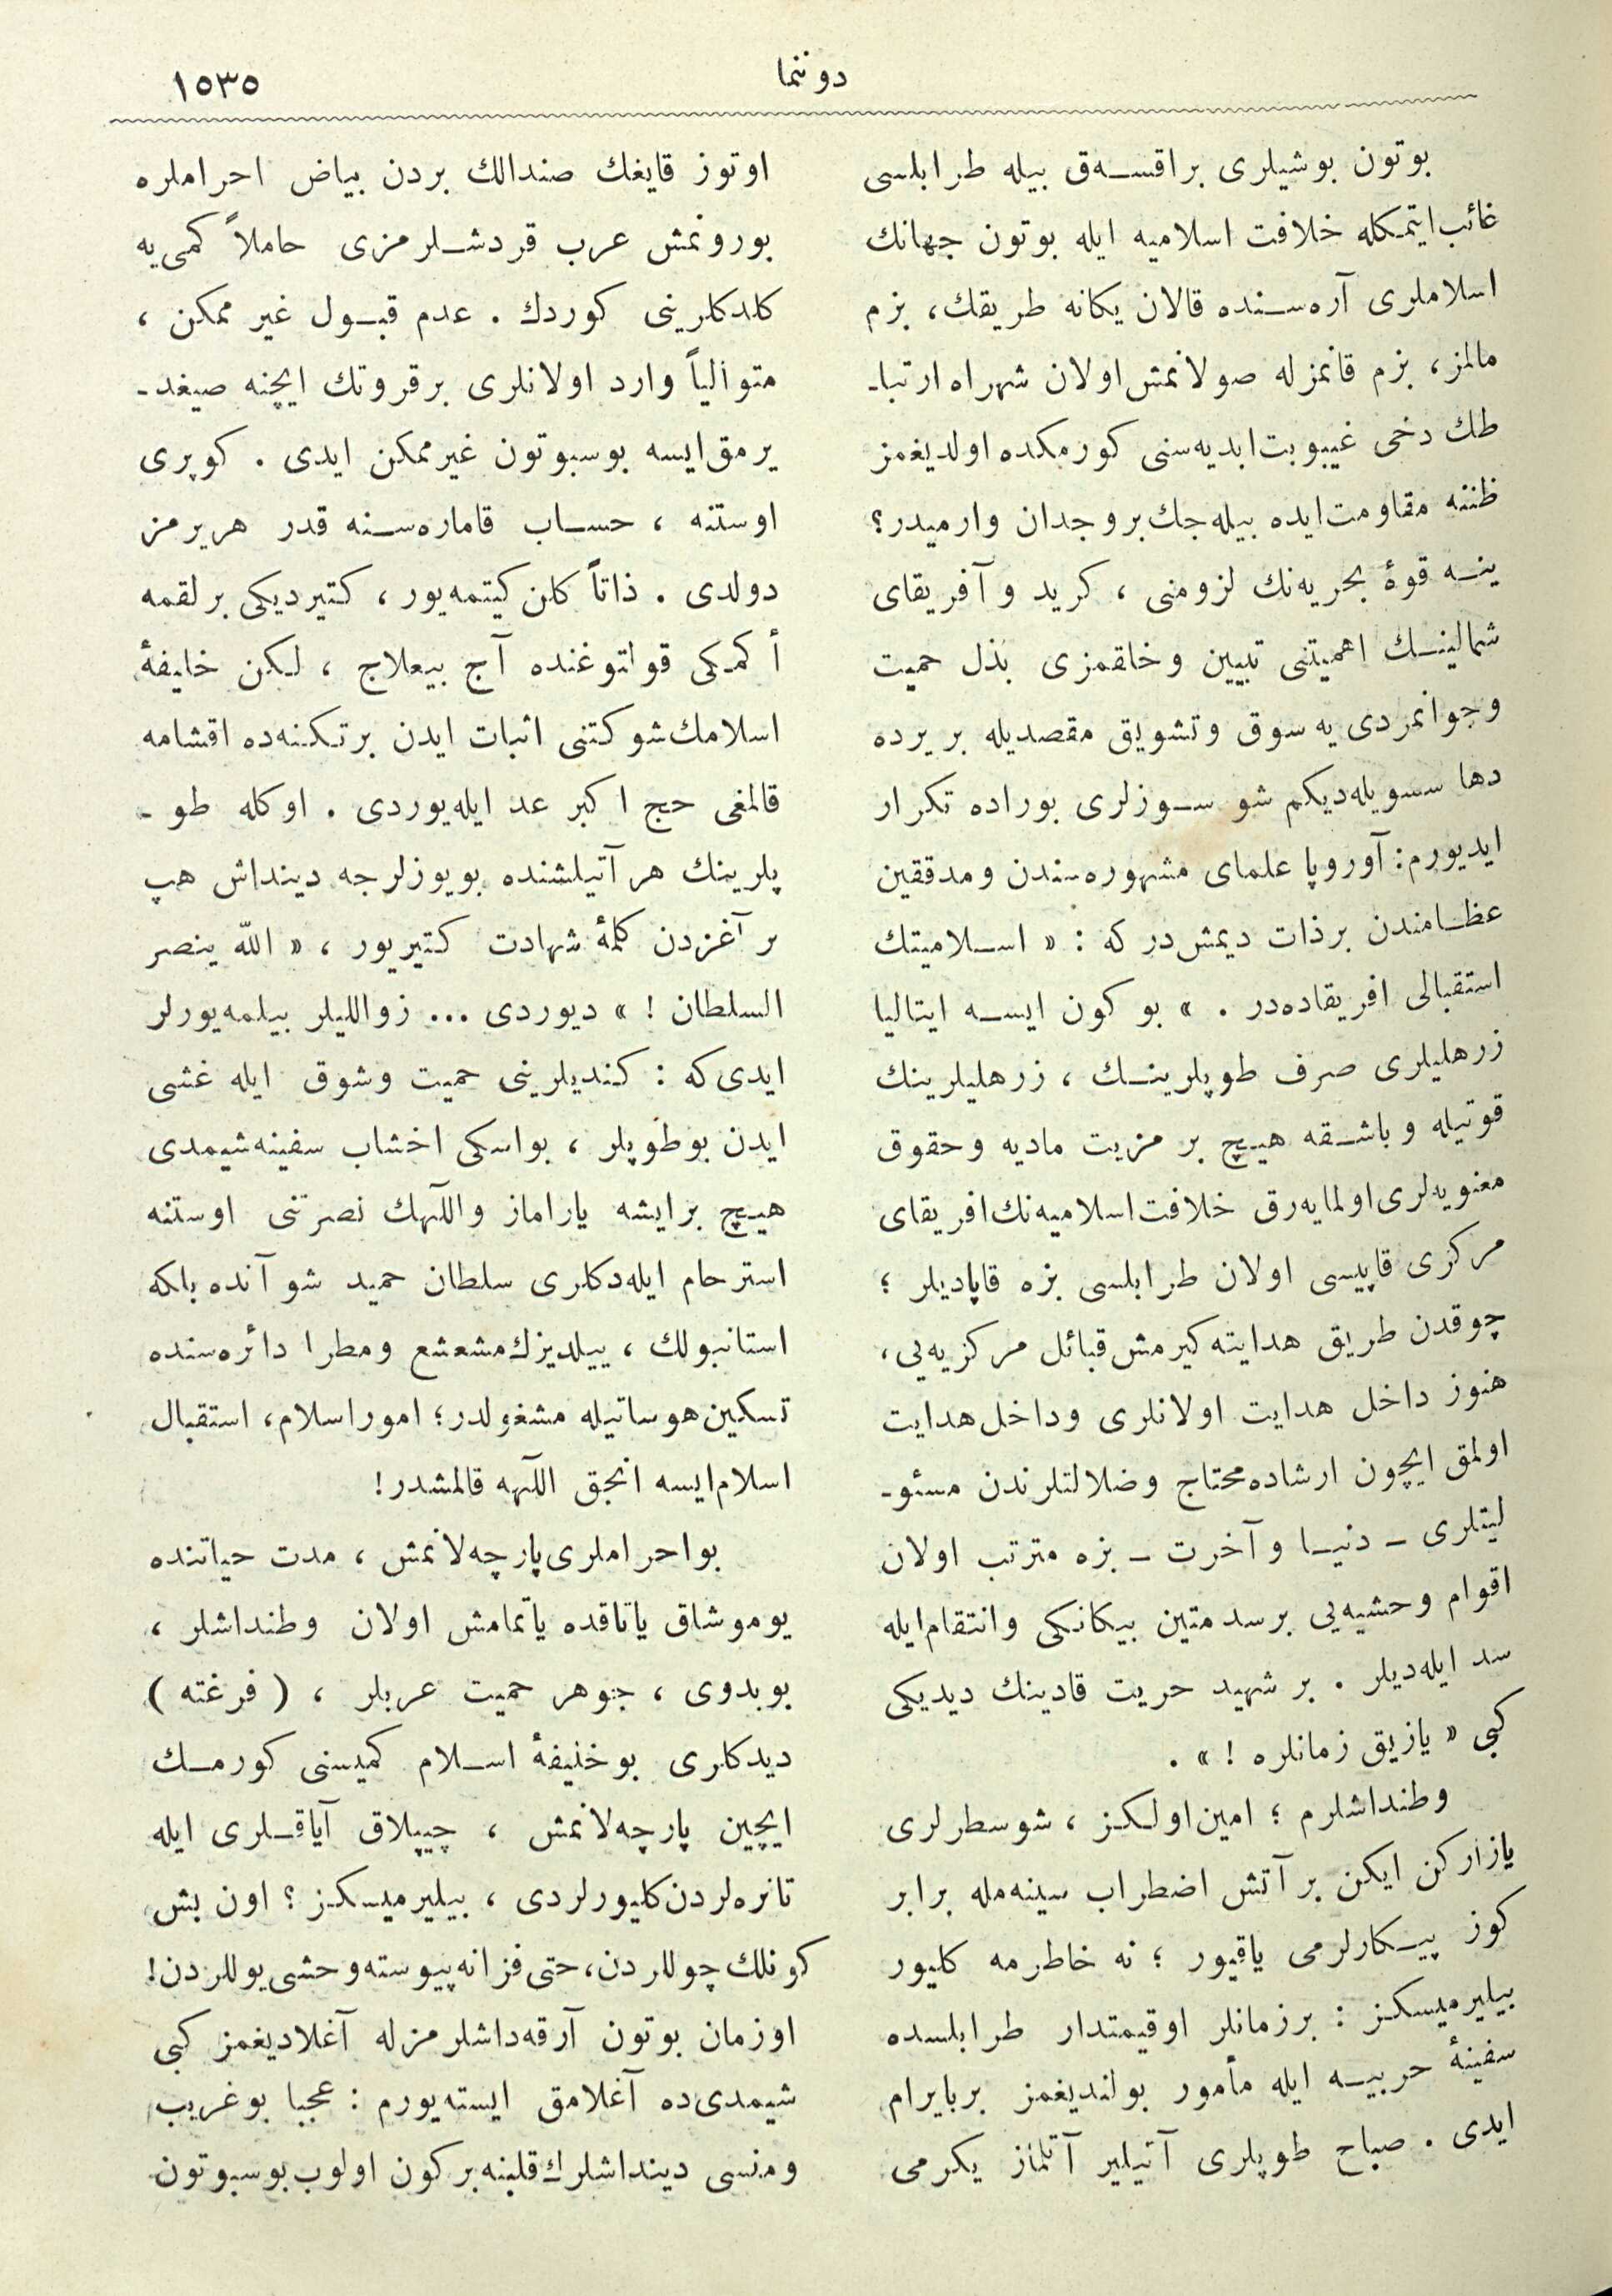 دوننما
١٥٣٥
بوتون بوشيلری براقسه‌ق بيله طرابلسی
غائب ايتمكله خلافت اسلاميه ايله بوتون جهانك
اسلاملری آره‌سنده قالان يكانه طريقك، بزم
مالمز، بزم قانمزله صولانمش اولان شهراه ارتبا-
طك دخی غيبوبت ابديه‌سنی كورمكده اولديغمز
ظننه مقاومت ايده بيله‌جك بروجدان وارميدر؟
ينه قوۀ بحريه‌نك لزومنی ، كريد و آفريقای
شمالينك اهميتنی تبيين وخلقمزی بذل حميت
وجوانمردی‌يه سوق وتشويق مقصديله بريرده
دها سسويله‌ديكم شو سوزلری بوراده تكرار
ايديورم: آوروپا علمای مشهوره‌سندن ومدققين
عظامندن برذات ديمش‌در كه : « اسلاميتك
استقبالی افريقاده‌در . » بو كون ايسه ايتاليا
زرهليلری صرف طوپلرينك ، زرهليلرينك
قوتيله وباشقه هيچ بر مزيت ماديه وحقوق
معنويه‌لری اولمايه‌رق خلافت اسلاميه‌نك افريقای
مركزی قاپيسی اولان طرابلسی بزه قاپاديلر ؛
چوقدن طريق هدايته كيرمش قبائل مركزيه‌يی،
هنوز داخل هدايت اولانلری وداخل هدايت
اولمق ايچون ارشاده محتاج وضلالتلرندن مسئو-
ليتلری – دنيا وآخرت – بزه مترتب اولان
اقوام وحشيه‌يی برسد متين بيكانكی وانتقام ايله
سد ايله‌ديلر . بر شهيد حريت قادينك ديديكی
كبی « يازيق زمانلره ! » .
وطنداشلرم ؛ امين اولكز ، شوسطرلری
يازاركن ايكن بر آتش اضطراب سينه‌مله برابر
كوز پيكارلرمی ياقيور ؛ نه خاطرمه كليور
بيليرميسكز : برزمانلر اوقيمتدار طرابلسده
سفينۀ حربيه ايله مأمور بولنديغمز بربايرام
ايدی . صباح طوپلری آتيلير آتلماز يكرمی
اوتوز قايغك صندالك بردن بياض احراملره
بورونمش عرب قردشلرمزی حاملاً كمی‌يه
كلدكلرينی كوردك . عدم قبول غير ممكن ،
متوالياً وارد اولانلری برقروتك ايچنه صيغد-
يرمق ايسه بوسبوتون غيرممكن ايدی . كوپری
اوستنه ، حساب قاماره‌سنه قدر هريرمز
دولدی . ذاتاً كلن كيتمه‌يور ، كتيرديكی برلقمه
أكمكی قولتوغنده آج بيعلاج ، لكن خليفۀ
اسلامك شوكتنی اثبات ايدن برتكنه‌ده اقشامه
قالمغی حج اكبر عد ايله‌يوردی . اوكله طو -
پلرينك هرآتيلشنده بويوزلرجه دينداش هپ
بر آغزدن كلمۀ شهادت كتيريور ، « الله ينصر
السلطان ! » ديوردی ... زوالليلر بيلمه‌يورلر
ايدی كه : كنديلرينی حميت وشوق ايله غشی
ايدن بوطوپلر ، بواسكی اخشاب سفينه شيمدی
هيچ برايشه ياراماز واللٓهك نصرتنی اوستنه
استرحام ايله‌دكلری سلطان حميد شو آنده بلكه
استانبولك ، ييلديزك مشعشع ومطرا دائره‌سنده
تسكين هوساتيله مشغولدر؛ اموراسلام، استقبال
اسلام ايسه انجق اللٓهه قالمشدر!
بواحراملری پارچه‌لانمش ، مدت حياتنده
يوموشاق ياتاقده ياتمامش اولان وطنداشلر ،
بوبدوی ، جوهر حميت عربلر ، ( فرغته )
ديدكلری بوخليفۀ اسلام كميسنی كورمك
ايچين پارچه‌لانمش ، چيپلاق آياقلری ايله
تانره‌لردن كليورلردی ، بيليرميسكز ؟ اون بش
كونلك چوللردن، حتی فزانه پيوسته وحشی يوللردن!
اوزمان بوتون آرقه‌داشلرمزله آغلاديغمز كبی
شيمدی‌ده آغلامق ايسته‌يورم : عجبا بوغريب
ومنسی دينداشلرك قلبنه بركون اولوب بوسبوتون